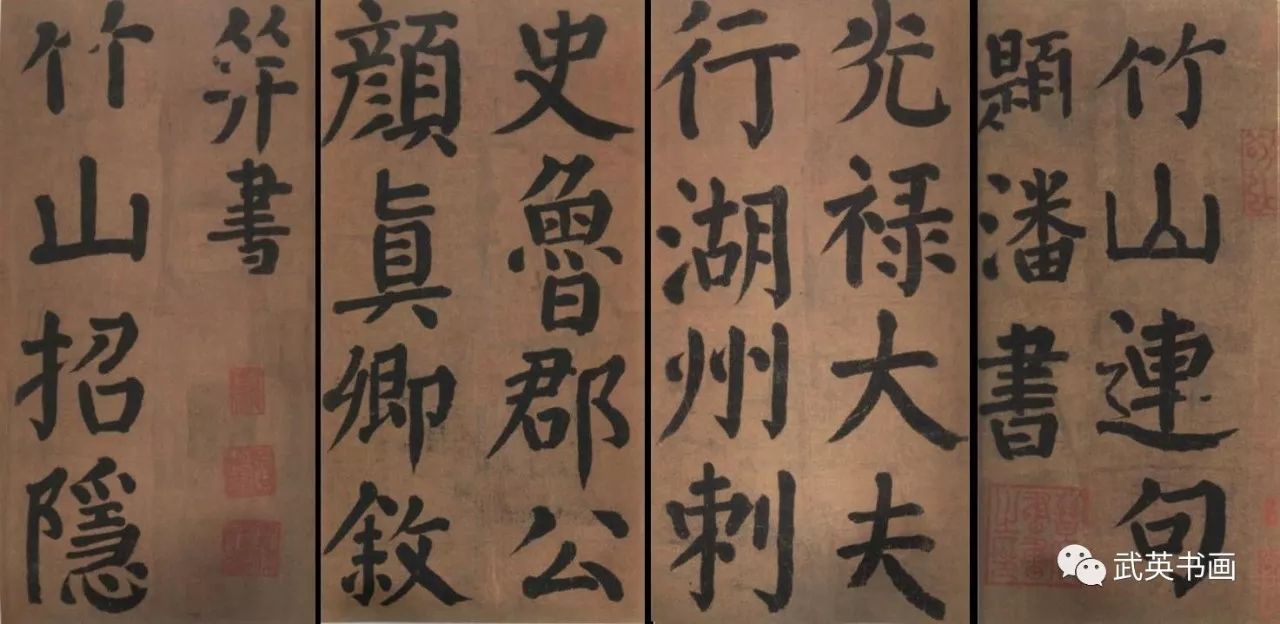 竹山連句
題潘書
光禄大夫
行湖州刺
史魯郡公
顔眞卿敘
笄書
竹山招隱
武英书画